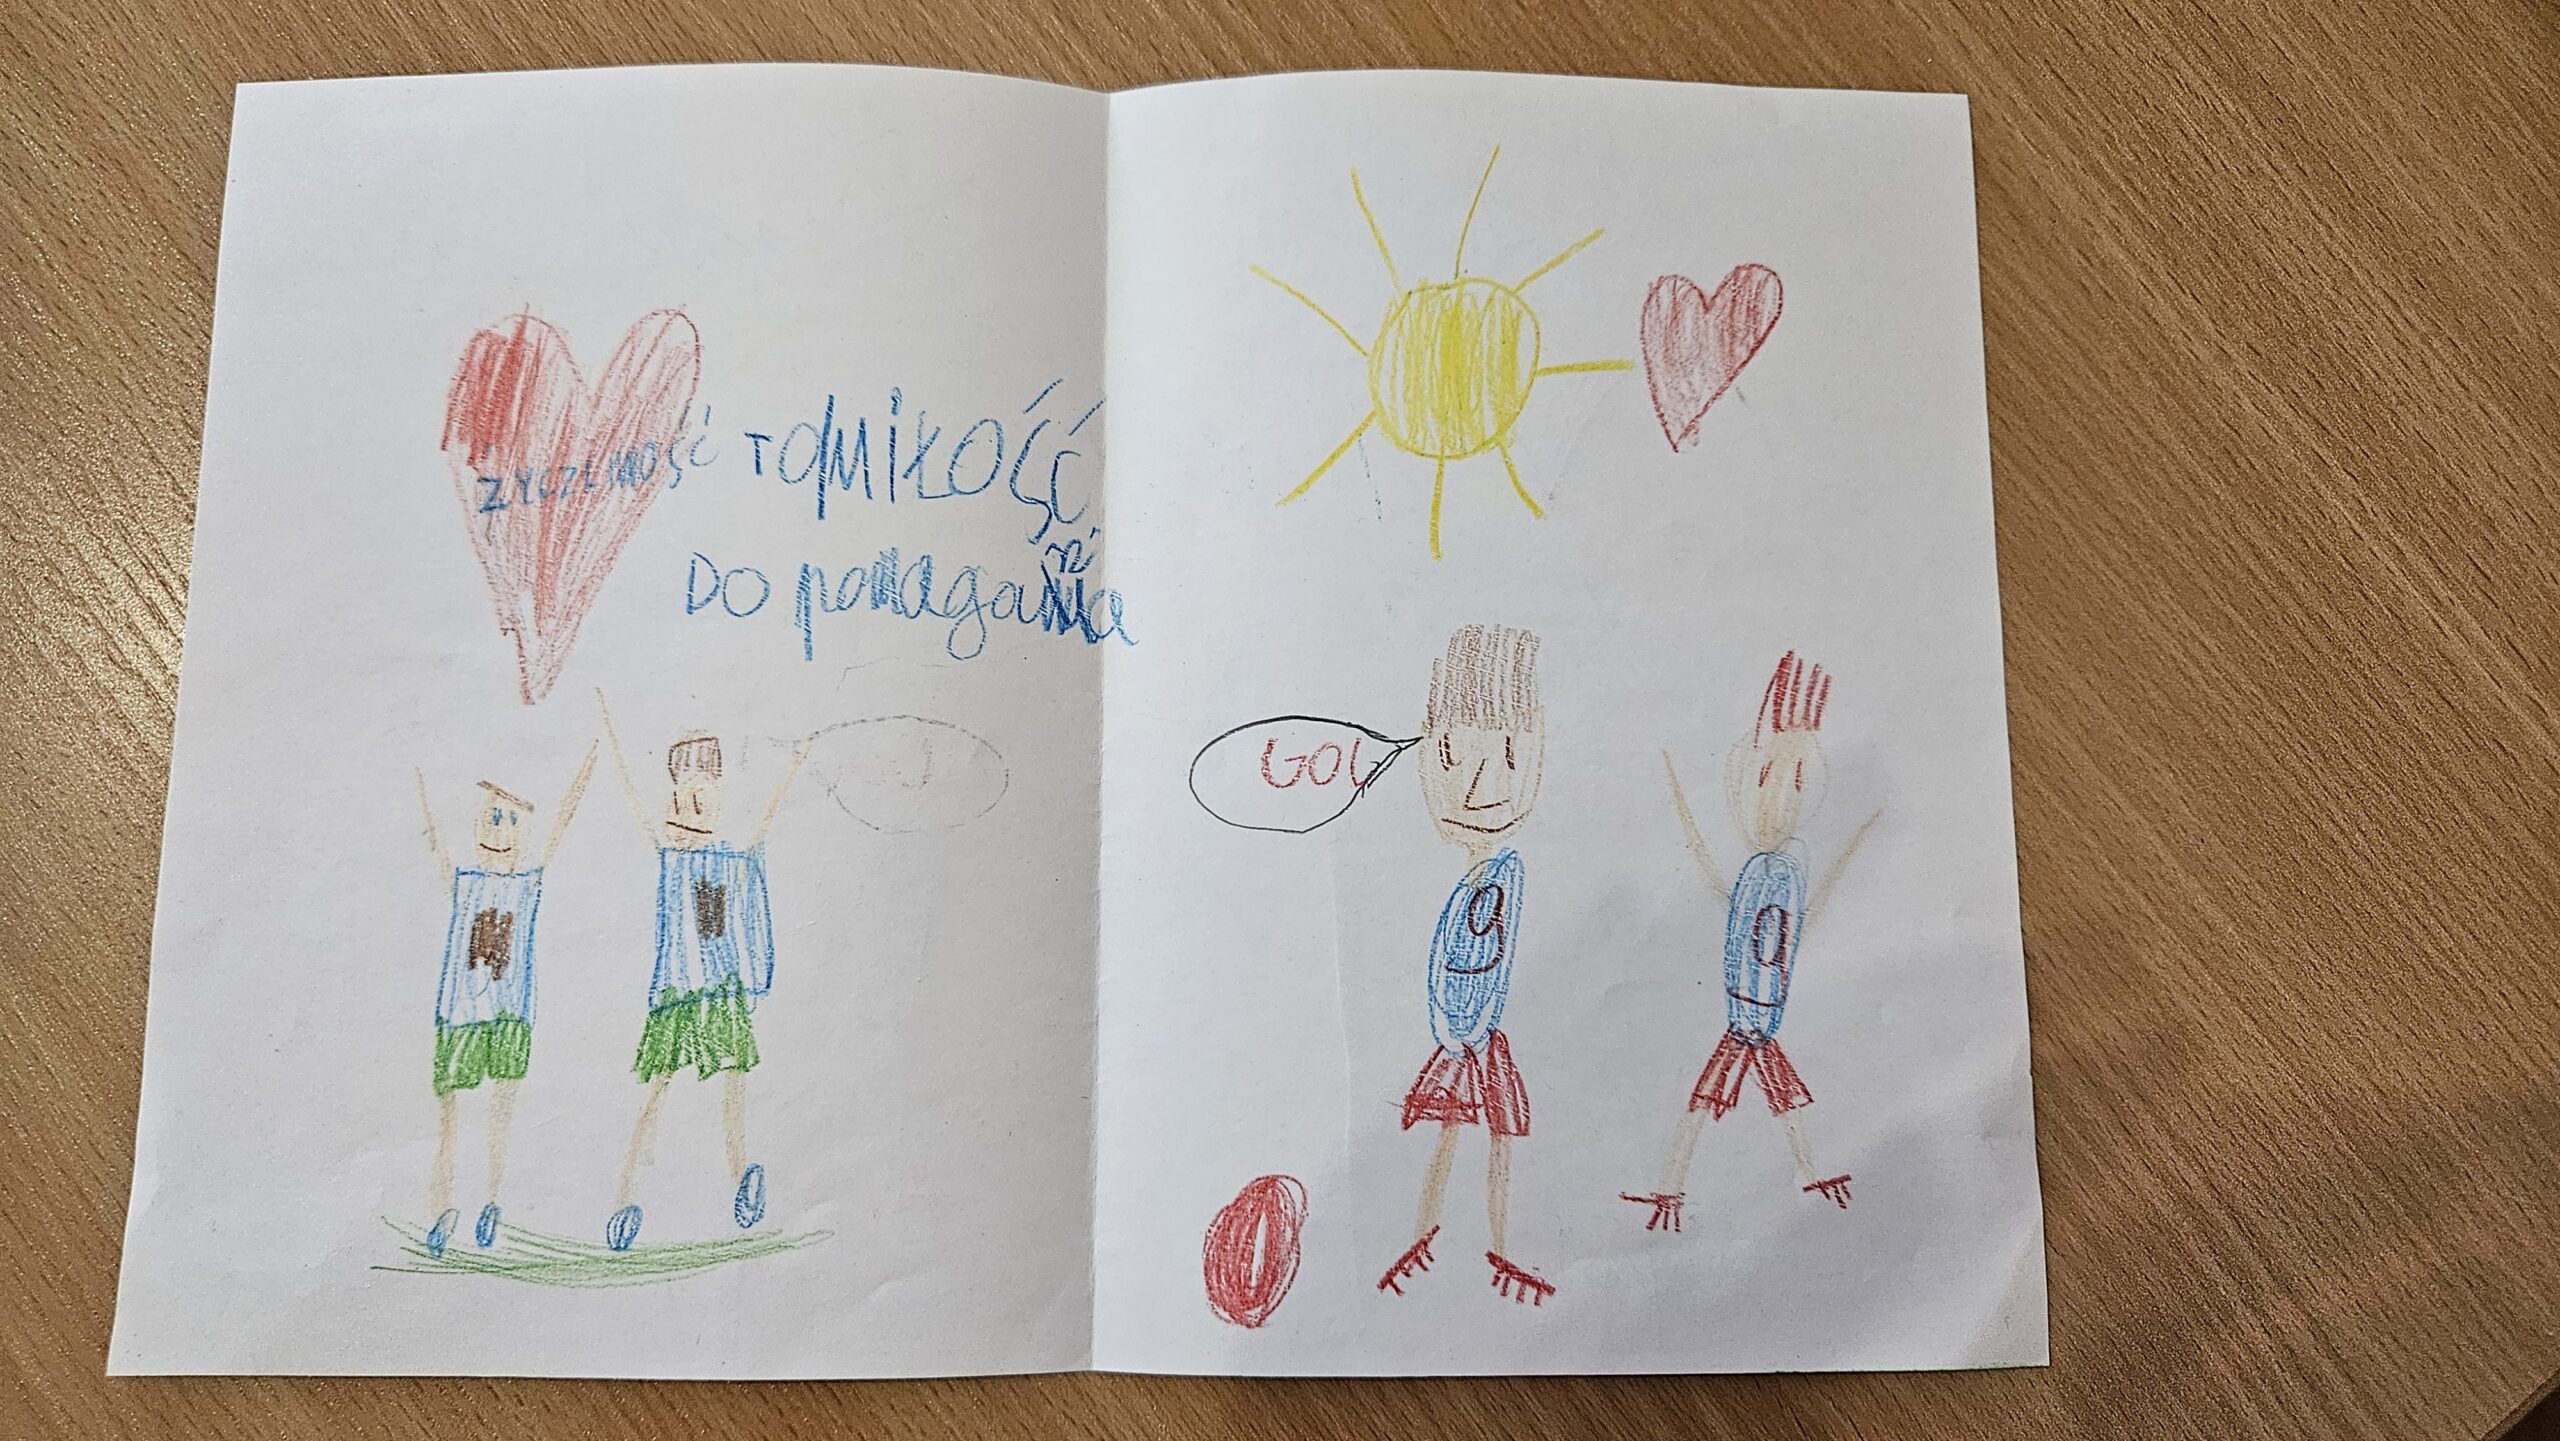 ZYCZLIWOŚĆ TO MIŁOŚĆ
DO pomagania
GOL
9
9